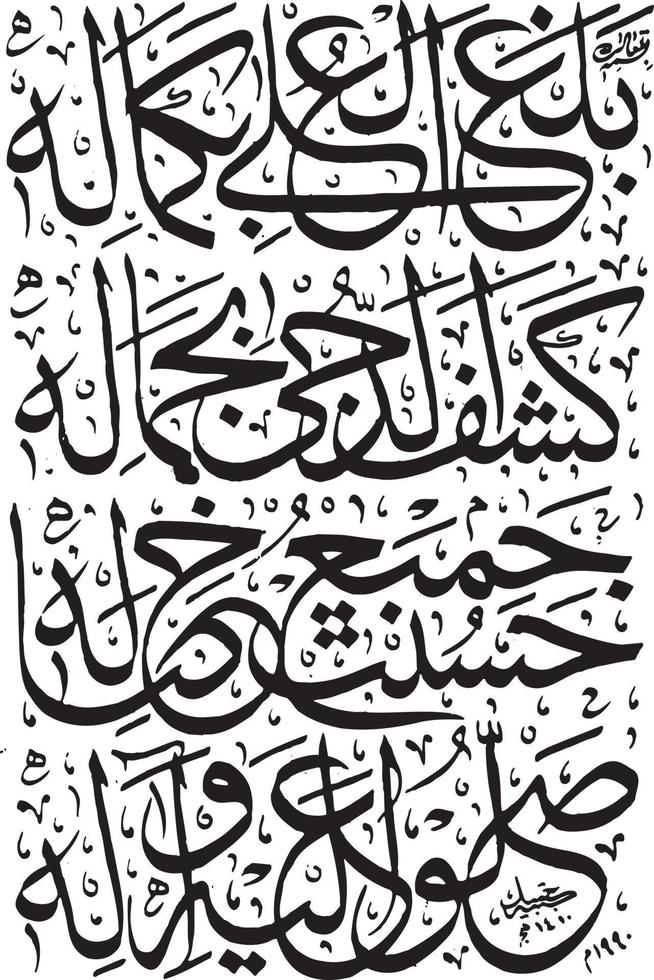 بلغ العلى بكماله
كشف الدجى بجماله
حسنت جميع خصاله
صلوا عليه وآله
١٤١٠
١٩٩٠م